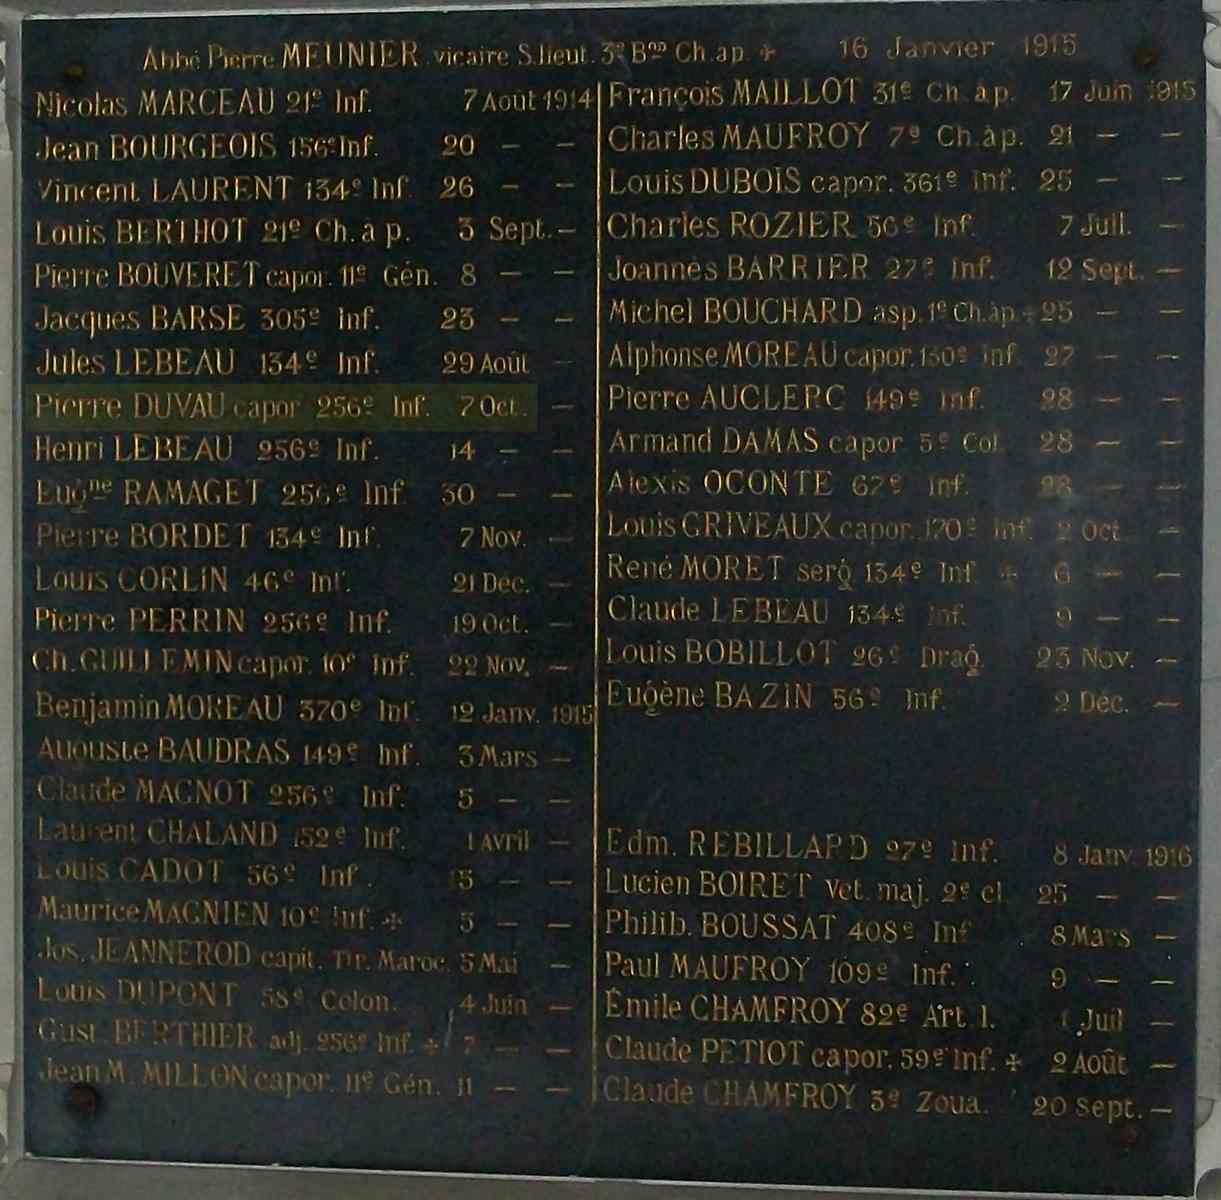 Abbé Pierre MEUNIER vicaire S.lieut. 3e Bon Ch.ap. + 16 Janvier 1915
Nicolas MARCEAU 21e Inf. 7 Août 1914
Jean BOURGEOIS 156e Inf. 20 — —
Vincent LAURENT 134e Inf. 26 — —
Louis BERTHOT 21e Ch. à p. 3 Sept. —
Pierre BOUVERET capor. 11e Gén. 8 — —
Jacques BARSE 305e Inf. 23 — —
Jules LEBEAU 134e Inf. 29 Août —
Pierre DUVAU capor 256e Inf. 7 Oct. —
Henri LEBEAU 256e Inf. 14 — —
Eugne RAMAGET 256e Inf 30 — —
Pierre BORDET 134e Inf. 7 Nov. —
Louis CORLIN 46e Inf. 21 Déc. —
Pierre PERRIN 256e Inf. 19 Oct. —
Ch. GUILLEMIN capor. 10e Inf. 22 Nov. —
Benjamin MOREAU 370e Inf. 12 Janv. 1915
Auguste BAUDRAS 149e Inf. 3 Mars —
Claude MAGNOT 256e Inf. 5 — —
Laurent CHALAND 152e Inf. 1 Avril —
Louis CADOT 56e Inf. 5 — —
Maurice MAGNIEN 10e Inf. + 5 — —
Jos. JEANNEROD capit. Tir. Maroc. 5 Mai —
Louis DUPONT 58e Colon. 4 Juin —
Gust. BERTHIER adj. 256e Inf. + 7 — —
Jean M. MILLON capor. 11e Gén. 11 — —
François MAILLOT 31e Ch. à p. 17 Juin 1915
Charles MAUFROY 7e Ch. à p. 21 — —
Louis DUBOIS capor. 361e Inf. 25 — —
Charles ROZIER 56e Inf. 7 Juil. —
Joannès BARRIER 27e Inf. 12 Sept. —
Michel BOUCHARD asp. 1e Ch. àp. + 25 — —
Alphonse MOREAU capor. 130e Inf. 27 — —
Pierre AUCLERC 149e Inf. 28 — —
Armand DAMAS capor 5e Col. 28 — —
Alexis OCONTE 67e Inf. 28 — —
Louis GRIVEAUX capor. 170e Inf. 2 Oct. —
René MORET serg 134e Inf + 6 — —
Claude LEBEAU 134e Inf. 9 — —
Louis BOBILLOT 26e Drag. 23 Nov. —
Eugène BAZIN 56e Inf. 2 Déc. —
Edm. REBILLARD 27e Inf. 8 Janv. 1916
Lucien BOIRET vet. maj. 2e cl 25 — —
Philib. BOUSSAT 408e Inf 8 Mars —
Paul MAUFROY 109e Inf. 9 — —
Émile CHAMFROY 82e Art l. 1 Juil —
Claude PETIOT capor. 59e Inf. + 2 Août —
Claude CHAMFROY 3e Zoua. 20 Sept. —